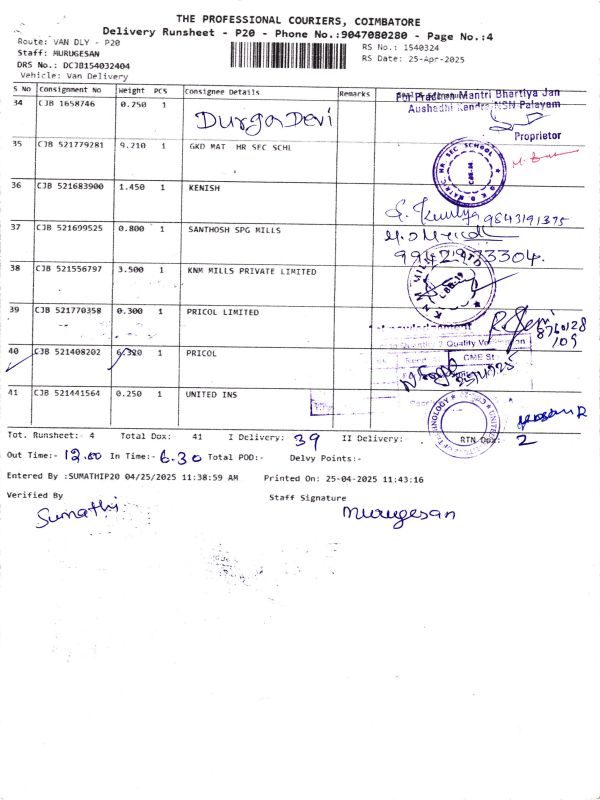 THE PROFESSIONAL COURIERS, COIMBATORE
Delivery Runsheet - P20 - Phone No.:9047080280 - Page No.:4
Route: VAN DLY - P20
Staff: MURUGESAN
DRS No.: DCJB154032404
Vehicle: Van Delivery
RS No.: 1540324
RS Date: 25-Apr-2025
S No Consignment No Weight PCS Consignee Details Remarks
For Pradhan Mantri Bhartiya Jan
Aushadhi Kendra NSN Palayam
Proprietor
34 CJB 1658746 0.250 1
Durga Devi
35 CJB 521779281 9.210 1 GKD MAT HR SEC SCHL
36 CJB 521683900 1.450 1 KENISH
9843191375
37 CJB 521699525 0.800 1 SANTHOSH SPG MILLS
9942973304
38 CJB 521556797 3.500 1 KNM MILLS PRIVATE LIMITED
39 CJB 521770358 0.300 1 PRICOL LIMITED
40 CJB 521408202 6.320 1 PRICOL
41 CJB 521441564 0.250 1 UNITED INS
Tot. Runsheet:- 4 Total Dox: 41 I Delivery: 39 II Delivery: RTN Dox: 2
Out Time:- 12.00 In Time:- 6.30 Total POD:- Delvy Points:-
Entered By :SUMATHIP20 04/25/2025 11:38:59 AM Printed On: 25-04-2025 11:43:16
Verified By Staff Signature
Sumathi Murugesan